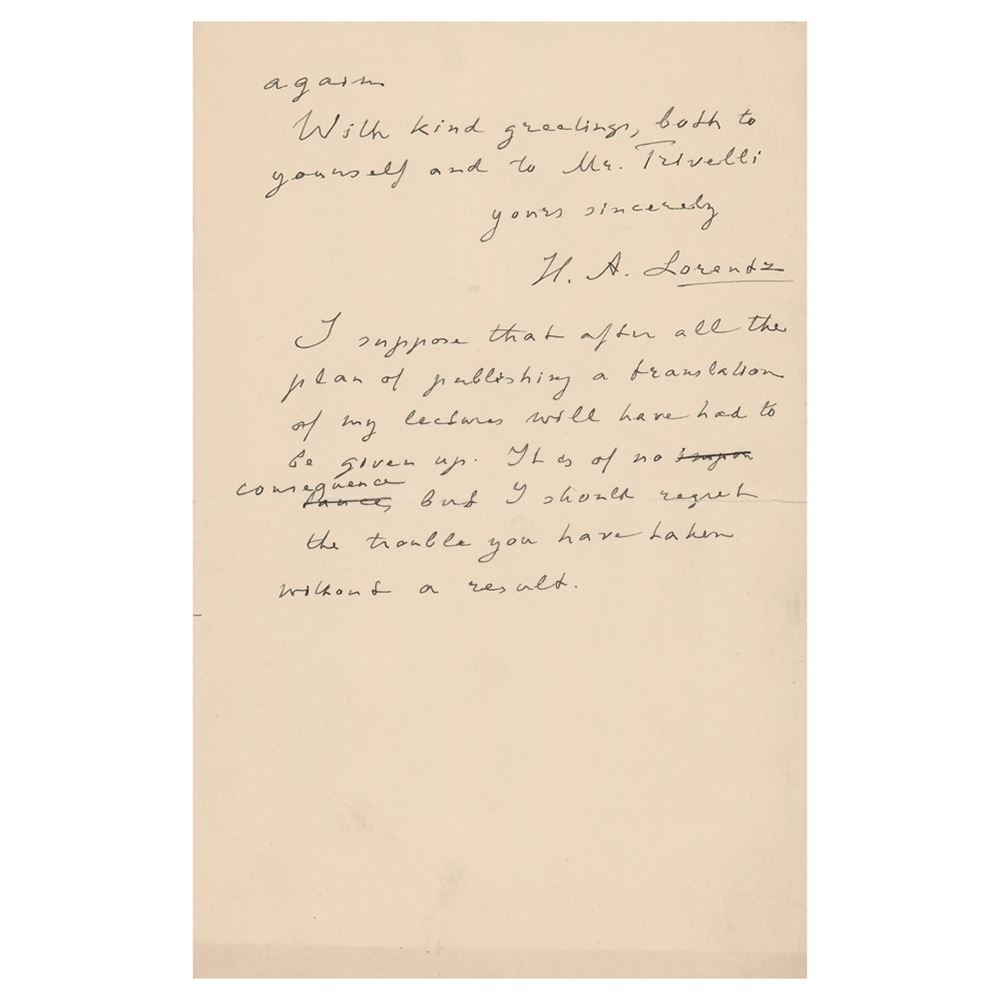 again.
With kind greetings, both to
yourself and to Mr. Trivelli
yours sincerely
H. A. Lorentz
I suppose that after all the
plan of publishing a translation
of my lectures will have had to
be given up. It is of no impor
consequence
tance, but I should regret
the trouble you have taken
without a result.